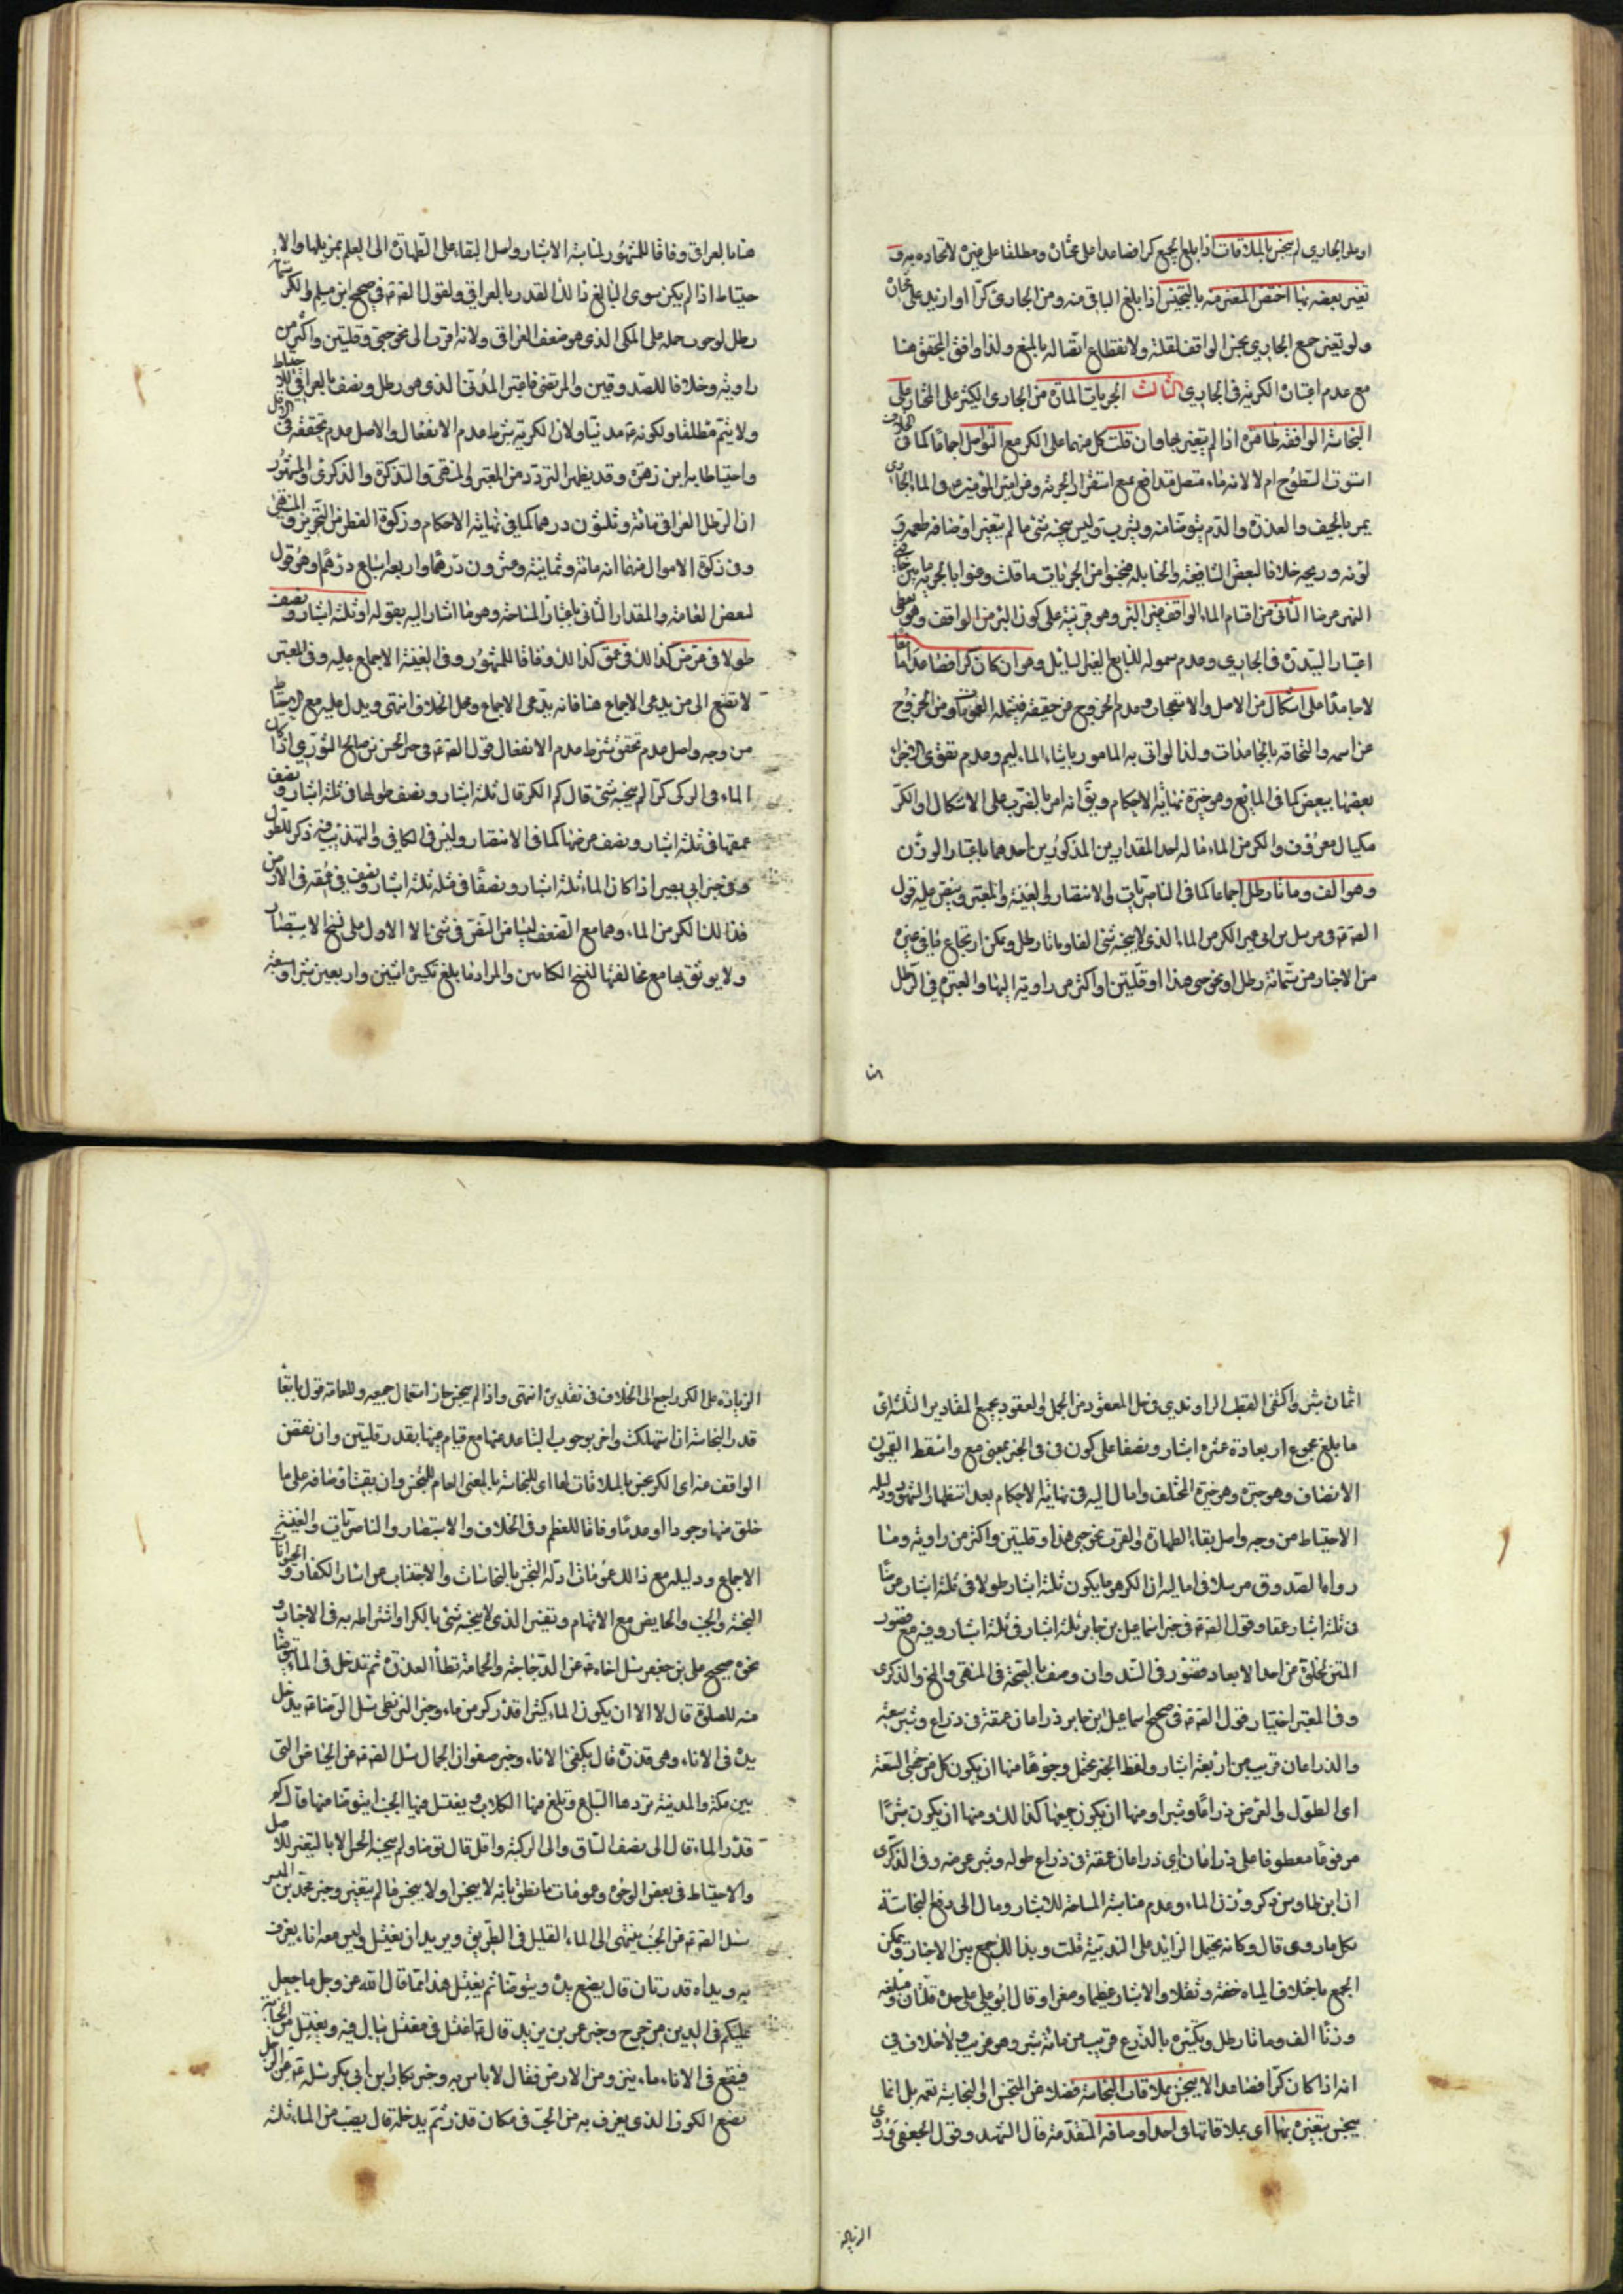 او بلغ الجاري لم ينجس بالملاقات اذا بلغ الجميع كرا فصاعدا على مختاره ومطلقا على غيره لاتحاده به و
تغير بعضه بها اختص المتغير منه بالتنجيس اذا بلغ الباقي منه ومن الجاري كرا او ازيد على مختاره
ولو تغير جميع الجاري نجس الواقف لقلته ولانقطاع اتصاله بالمنبع ولذا وافق المحقق هنا
مع عدم اعتباره الكرية في الجاري الثالث الجريات المارة من الجاري الكثير على المختار على
النجاسة الواقفة طاهرة اذا لم يتغير بها وان قلت كل منهما على الكر مع التواصل اجماعا كما في الخلاف
استوت السطوح ام لا لانه ماء متصل متدافع مع استقرار الجرية وعن امير المؤمنين في الماء الجاري
يمر بالجيف والعذرة والدم يتوضأ منه ويشرب وليس ينجسه شيء ما لم يتغير اوصافه طعمه و
لونه وريحه خلافا لبعض الشافعية والحنابلة فنجسوا من الجريات ما قلت وعنوا بالجرية ما بين حافتي
النهر عرضا الثاني من اقسام الماء الواقف غير البئر وهو قرينة على كون البئر من الواقف وهو يعطي
اعتبار السيلان في الجاري وعدم شموله للنابع الغير السايل وهو ان كان كرا فصاعدا مايعا
لا جامدا على اشكال من الاصل والاستصحاب وعدم الخروج عن حقيقته فيشمله العمومات ومن الخروج
عن اسمه والتحاقه بالجامدات ولذا لو اتى به المامور باتيان الماء ليم وعدم تقوى الاجزاء
بعضها ببعض كما في المايع وهو خيرة نهاية الاحكام ويق انه امر بالضرب على الاشكال والكر
مكيال معروف والكر من الماء ما له احد المقدارين المذكورين احدهما باعتبار الوزن
وهو الف ومائتا رطل اجماعا كما في الناصريات والانتصار والغنية والمعتبر وينص عليه قول
الصادق في مرسل ابن ابي عمير الكر من الماء الذي لا ينجسه شيء الف ومائتا رطل ويمكن ارجاع ما في غيره
من الاخبار من ستمائة رطل او نحو حبي هذا او قلتين او اكثر من راوية اليها والمعتبر في الرطل
هنا
هنا بالعراقي وفاقا للمشهور لمناسبة الاشبار واصل البقاء على الطهارة الى العلم بمزيلها والا
حتياط اذا لم يكن سوى البالغ ذلك القدر بالعراقي ولقول الصادق في صحيح ابن مسلم والكر ستمائة
رطل لوجوب حمله على المكي الذي هو ضعف العراقي ولانه اقرب الى نحو حبي وقلتين واكثر من
راوية وخلافا للصدوقين والمرتضى فاعتبر المدني الذي هو رطل ونصف بالعراقي للاحتياط
ولا يتم مطلقا ولكونه مدنيا ولان الكرية شرط عدم الانفعال والاصل عدم تحققه في الاقل
واحتياطا به ابن زهرة وقد يظهر التردد من المعتبر والمنتهى والتذكرة والذكرى والمشهور
ان الرطل العراقي مائة وثلثون درهما كما في نهاية الاحكام وزكوة الفطر من التحرير والمنتهى
وفي زكوة الاموال منهما انه مائة وثمانية وعشرون درهما واربعة اسباع درهم وهو قول
لبعض العامة والمقدار الثاني باعتبار المساحة وهو ما اشار اليه بقوله او ثلثة اشبار ونصف
طولا في عرض كذلك في عمق كذلك وفاقا للمشهور وفي الغنية الاجماع عليه وفي المعتبر
لا تصغ الى من يدعى الاجماع هنا فانه يدعى الاجماع في محل الخلاف انتهى ويدل عليه مع الاحتياط
من وجه واصل عدم تحقق شرط عدم الانفعال قول الصادق في خبر الحسن بن صالح الثوري اذا كان
الماء في الركي كرا لم ينجسه شيء قال كم الكر قال ثلثة اشبار ونصف طولها في ثلثة اشبار ونصف
عمقها في ثلثة اشبار ونصف عرضها كما في الاستبصار وليس في الكافي والتهذيب فيه ذكر للطول
وفي خبر ابي بصير اذا كان الماء ثلثة اشبار ونصفا في مثله ثلثة اشبار ونصف في عمقه في الارض
فذلك الكر من الماء وهما مع الضعف ليسا من النص في شيء الا الاول على نسخ الاستبصار
ولا يوثق بها مع مخالفتها لنسخ الكتابين والمراد ما بلغ تكسيره اثنين واربعين شبرا وسبعة
اثمان شبر واكتفى القطب الراوندي في حل المعقود من الجمل والعقود بجمع المقادير الثلثة اي
ما بلغ مجموع ابعاده عشرة اشبار ونصفا على كون في في الخبر بمعنى مع واسقط القميون
الانصاف وهو خيرة المختلف وامال اليه في نهاية الاحكام بعد استظهار المشهور ودليله
الاحتياط من وجه واصل بقاء الطهارة والقرب نحو حبي هذا وقلتين واكثر من راوية وما
رواه الصدوق مرسلا في اماليه ان الكر هو ما يكون ثلثة اشبار طولا في ثلثة اشبار عرضا
في ثلثة اشبار عمقا وقول الصادق في خبر اسماعيل بن جابر ثلثة اشبار في ثلثة اشبار وفيه مع قصور
المتن لخلوه عن احد الابعاد قصور في السند وان وصف بالصحة في المنتهى والذكرى
وفي المعتبر اختيار قول الصادق في صحيح اسماعيل ابن جابر ذراعان عمقه في ذراع وشبر سعته
والذراعان قريب من اربعة اشبار ولفظ الخبر يحتمل وجوها منها ان يكون كل من جهتي السعة
اي الطول والعرض ذراعا وشبرا ومنها ان يكون جميعها كذلك ومنها ان يكون شبرا
مرفوعا معطوفا على ذراعان اي ذراعان عمقه في ذراع طوله وشبر عرضه وفي الذكرى
ان ابن طاوس ذكر وزن الماء وعدم مناسبة المساحة للاشبار ومال الى دفع النجاسة
بكل ما روى قال وكانه يحمل الزايد على الندبية قلت وبذلك جمع بين الاخبار ويمكن
الجمع باختلاف المياه خفة وثقلا والاشبار عظما وصغرا وقال ابو علي على حده قلتان ومبلغه
وزنا الف ومائتا رطل وتكسيره بالذرع قريب من مائة شبر وهو غريب ولا خلاف في
انه اذا كان كرا فصاعدا لا ينجس بملاقات النجاسة فضلا عن التنجس الى النجاسة نعم بل انما
ينجس بتغيره بها اي بملاقاتها في احد اوصافه المتقدمة قال الشهيد وقول الجعفي وروى
الزيادة
الزيادة على الكر راجع الى الخلاف في تقديره انتهى واذا لم ينجس جاز استعمال جميعه وللعامة قول بابقاء
قدر النجاسة ان استهلكت واخر بوجوب التباعد عنها مع قيام عينها بقدر قلتين وان نقص
الواقف منه اي الكر نجس بالملاقات لها اي للنجاسة بالمعنى العام للمتنجس وان بقيت اوصافه على ما
خلق منها وجودا او عدما وفاقا للمعظم وفي الخلاف والاستبصار والناصريات والغنية
الاجماع ودليله مع ذلك عمومات ادلة التنجس بالنجاسات والاجتناب عن اسآر الكفار والحيوانات
النجسة والجنب والحايض مع الاتهام وتفسير الذي لا ينجسه شيء بالكر او اشتراطه به في الاخبار و
نحوه صحيح علي بن جعفر سئل اخاه عن الدجاجة والحمامة تطأ العذرة ثم تدخل في الماء يتوضأ
منه للصلوة قال لا الا ان يكون الماء كثيرا قدر كر من ماء وخبر البزنطي سئل الرضا يدخل
يده في الاناء وهي قذرة قال يكفئ الاناء وخبر صفوان الجمال سئل الصادق عن الحياض التي
بين مكة والمدينة تردها السباع وتلغ فيها الكلاب ويغتسل فيها الجنب ايتوضأ منها قال كم
قدر الماء قال الى نصف الساق والى الركبة واقل قال توضأ ولم ينجسه الحسن الا بالتغير للاصل
والاحتياط في بعض الوجوه وعمومات ما نطق بانه لا ينجس او لا ينجس ما لم يتغير وخبر محمد بن الميسر
سئل الصادق عن الجنب ينتهى الى الماء القليل في الطريق ويريد ان يغتسل وليس معه اناء يغرف
به ويداه قذرتان قال يضع يده ويتوضأ ثم يغتسل هذا مما قال الله عز وجل ما جعل
عليكم في الدين من حرج وخبر عمر بن يزيد قال اغتسل في مغتسل يبال فيه ويغتسل من الجنابة
فيقع في الاناء ماء ينزو من الارض فقال لا باس به وخبر بكار ابن ابي بكر سئله عن الرجل
يضع الكوز الذي يغرف به من الحب في مكان قذر ثم يدخله قال يصب من الماء ثلثة